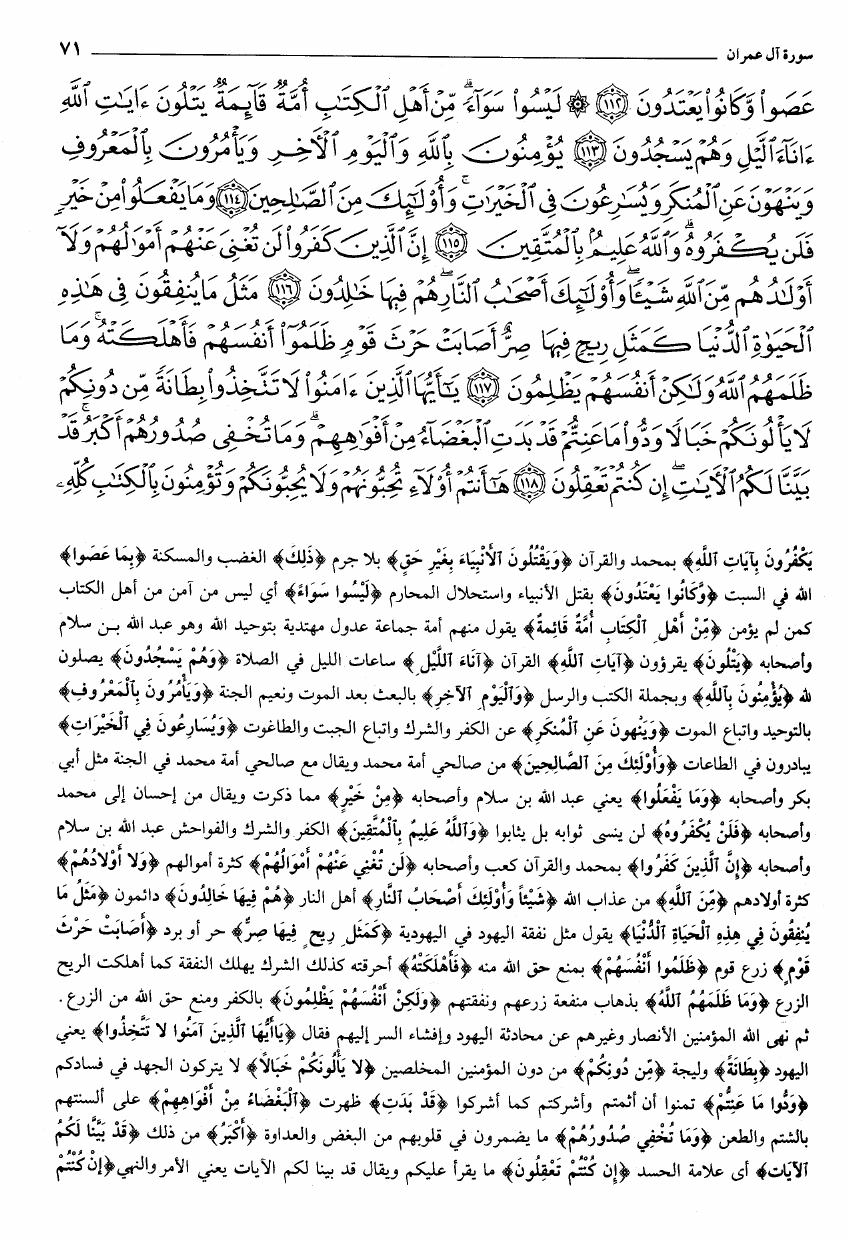 سورة آل عمران ٧١
عَصَوا۟ وَّكَانُوا۟ يَعْتَدُونَ ﴿١١٢﴾ ۞ لَيْسُوا۟ سَوَآءً ۗ مِّنْ أَهْلِ ٱلْكِتَٰبِ أُمَّةٌ قَآئِمَةٌ يَتْلُونَ ءَايَٰتِ ٱللَّهِ
ءَانَآءَ ٱلَّيْلِ وَهُمْ يَسْجُدُونَ ﴿١١٣﴾ يُؤْمِنُونَ بِٱللَّهِ وَٱلْيَوْمِ ٱلْأَخِرِ وَيَأْمُرُونَ بِٱلْمَعْرُوفِ
وَيَنْهَوْنَ عَنِ ٱلْمُنكَرِ وَيُسَٰرِعُونَ فِى ٱلْخَيْرَٰتِ ۚ وَأُو۟لَٰٓئِكَ مِنَ ٱلصَّٰلِحِينَ ﴿١١٤﴾ وَمَا يَفْعَلُوا۟ مِنْ خَيْرٍ
فَلَن يُكْفَرُوهُ ۗ وَٱللَّهُ عَلِيمٌۢ بِٱلْمُتَّقِينَ ﴿١١٥﴾ إِنَّ ٱلَّذِينَ كَفَرُوا۟ لَن تُغْنِىَ عَنْهُمْ أَمْوَٰلُهُمْ وَلَآ
أَوْلَٰدُهُم مِّنَ ٱللَّهِ شَيْـًٔا ۖ وَأُو۟لَٰٓئِكَ أَصْحَٰبُ ٱلنَّارِ ۚ هُمْ فِيهَا خَٰلِدُونَ ﴿١١٦﴾ مَثَلُ مَا يُنفِقُونَ فِى هَٰذِهِ
ٱلْحَيَوٰةِ ٱلدُّنْيَا كَمَثَلِ رِيحٍ فِيهَا صِرٌّ أَصَابَتْ حَرْثَ قَوْمٍ ظَلَمُوٓا۟ أَنفُسَهُمْ فَأَهْلَكَتْهُ ۚ وَمَا
ظَلَمَهُمُ ٱللَّهُ وَلَٰكِنْ أَنفُسَهُمْ يَظْلِمُونَ ﴿١١٧﴾ يَٰٓأَيُّهَا ٱلَّذِينَ ءَامَنُوا۟ لَا تَتَّخِذُوا۟ بِطَانَةً مِّن دُونِكُمْ
لَا يَأْلُونَكُمْ خَبَالًا وَدُّوا۟ مَا عَنِتُّمْ قَدْ بَدَتِ ٱلْبَغْضَآءُ مِنْ أَفْوَٰهِهِمْ وَمَا تُخْفِى صُدُورُهُمْ أَكْبَرُ ۚ قَدْ
بَيَّنَّا لَكُمُ ٱلْأَيَٰتِ ۖ إِن كُنتُمْ تَعْقِلُونَ ﴿١١٨﴾ هَٰٓأَنتُمْ أُو۟لَآءِ تُحِبُّونَهُمْ وَلَا يُحِبُّونَكُمْ وَتُؤْمِنُونَ بِٱلْكِتَٰبِ كُلِّهِۦ
يَكْفُرُونَ بِآيَاتِ ٱللَّهِ﴾ بمحمد والقرآن ﴿وَيَقْتُلُونَ ٱلْأَنْبِيَاءَ بِغَيْرِ حَقٍ﴾ بلا جرم ﴿ذَلِكَ﴾ الغضب والمسكنة ﴿بِمَا عَصَوا﴾
الله في السبت ﴿وَّكَانُوا يَعْتَدُونَ﴾ بقتل الأنبياء واستحلال المحارم ﴿لَيْسُوا سَوَاءً﴾ أي ليس من آمن من أهل الكتاب
كمن لم يؤمن ﴿مِّنْ أَهْلِ ٱلْكِتَابِ أُمَّةٌ قَائِمَةٌ﴾ يقول منهم أمة جماعة عدول مهتدية بتوحيد الله وهو عبد الله بن سلام
وأصحابه ﴿يَتْلُونَ﴾ يقرؤون ﴿آيَاتِ ٱللَّهِ﴾ القرآن ﴿آنَاءَ ٱللَّيْلِ﴾ ساعات الليل في الصلاة ﴿وَهُمْ يَسْجُدُونَ﴾ يصلون
لله ﴿يُؤْمِنُونَ بِٱللَّهِ﴾ وبجملة الكتب والرسل ﴿وَٱلْيَوْمِ ٱلآخِرِ﴾ بالبعث بعد الموت ونعيم الجنة ﴿وَيَأْمُرُونَ بِٱلْمَعْرُوفِ﴾
بالتوحيد واتباع الموت ﴿وَيَنْهونَ عَنِ ٱلْمُنكَرِ﴾ عن الكفر والشرك واتباع الجبت والطاغوت ﴿وَيُسَارِعُونَ فِي ٱلْخَيْرَاتِ﴾
يبادرون في الطاعات ﴿وَأُوْلَئِكَ مِنَ ٱلصَّالِحِينَ﴾ من صالحي أمة محمد ويقال مع صالحي أمة محمد في الجنة مثل أبي
بكر وأصحابه ﴿وَمَا يَفْعَلُوا﴾ يعني عبد الله بن سلام وأصحابه ﴿مِنْ خَيْرٍ﴾ مما ذكرت ويقال من إحسان إلى محمد
وأصحابه ﴿فَلَنْ يُكْفَرُوهُ﴾ لن ينسى ثوابه بل يثابوا ﴿وَٱللَّهُ عَلِيمٌ بِٱلْمُتَّقِينَ﴾ الكفر والشرك والفواحش عبد الله بن سلام
وأصحابه ﴿إِنَّ ٱلَّذِينَ كَفَرُوا﴾ بمحمد والقرآن كعب وأصحابه ﴿لَن تُغْنِي عَنْهُمْ أَمْوَالُهُمْ﴾ كثرة أموالهم ﴿وَلا أَوْلادُهُمْ﴾
كثرة أولادهم ﴿مِّنَ ٱللَّهِ﴾ من عذاب الله ﴿شَيْئاً وَأُوْلَئِكَ أَصْحَابُ ٱلنَّارِ﴾ أهل النار ﴿هُمْ فِيهَا خَالِدُونَ﴾ دائمون ﴿مَثَلُ مَا
يُنفِقُونَ فِي هِذِهِ ٱلْحَيَاةِ ٱلدُّنْيَا﴾ يقول مثل نفقة اليهود في اليهودية ﴿كَمَثَلِ رِيحٍ فِيهَا صِرٌّ﴾ حر أو برد ﴿أَصَابَتْ حَرْثَ
قَوْمٍ﴾ زرع قوم ﴿ظَلَمُوا أَنْفُسَهُمْ﴾ بمنع حق الله منه ﴿فَأَهْلَكَتْهُ﴾ أحرقته كذلك الشرك يهلك النفقة كما أهلكت الريح
الزرع ﴿وَمَا ظَلَمَهُمُ ٱللَّهُ﴾ بذهاب منفعة زرعهم ونفقتهم ﴿وَلَكِنْ أَنْفُسَهُمْ يَظْلِمُونَ﴾ بالكفر ومنع حق الله من الزرع.
ثم نهى الله المؤمنين الأنصار وغيرهم عن محادثة اليهود وإفشاء السر إليهم فقال ﴿يَاأَيُّهَا ٱلَّذِينَ آمَنُوا لا تَتَّخِذُوا﴾ يعني
اليهود ﴿بِطَانَةً﴾ وليجة ﴿مِّن دُونِكُمْ﴾ من دون المؤمنين المخلصين ﴿لا يَأْلُونَكُمْ خَبَالاً﴾ لا يتركون الجهد في فسادكم
﴿وَدُّوا مَا عَنِتُّمْ﴾ تمنوا أن أثمتم وأشركتم كما أشركوا ﴿قَدْ بَدَتِ﴾ ظهرت ﴿ٱلْبَغْضَاءُ مِنْ أَفْوَاهِهِمْ﴾ على ألسنتهم
بالشتم والطعن ﴿وَمَا تُخْفِي صُدُورُهُمْ﴾ ما يضمرون في قلوبهم من البغض والعداوة ﴿أَكْبَرُ﴾ من ذلك ﴿قَدْ بَيَّنَّا لَكُمُ
الآيَاتِ﴾ أى علامة الحسد ﴿إِن كُنْتُمْ تَعْقِلُونَ﴾ ما يقرأ عليكم ويقال قد بينا لكم الآيات يعني الأمر والنهي ﴿إِنْ كُنْتُمْ